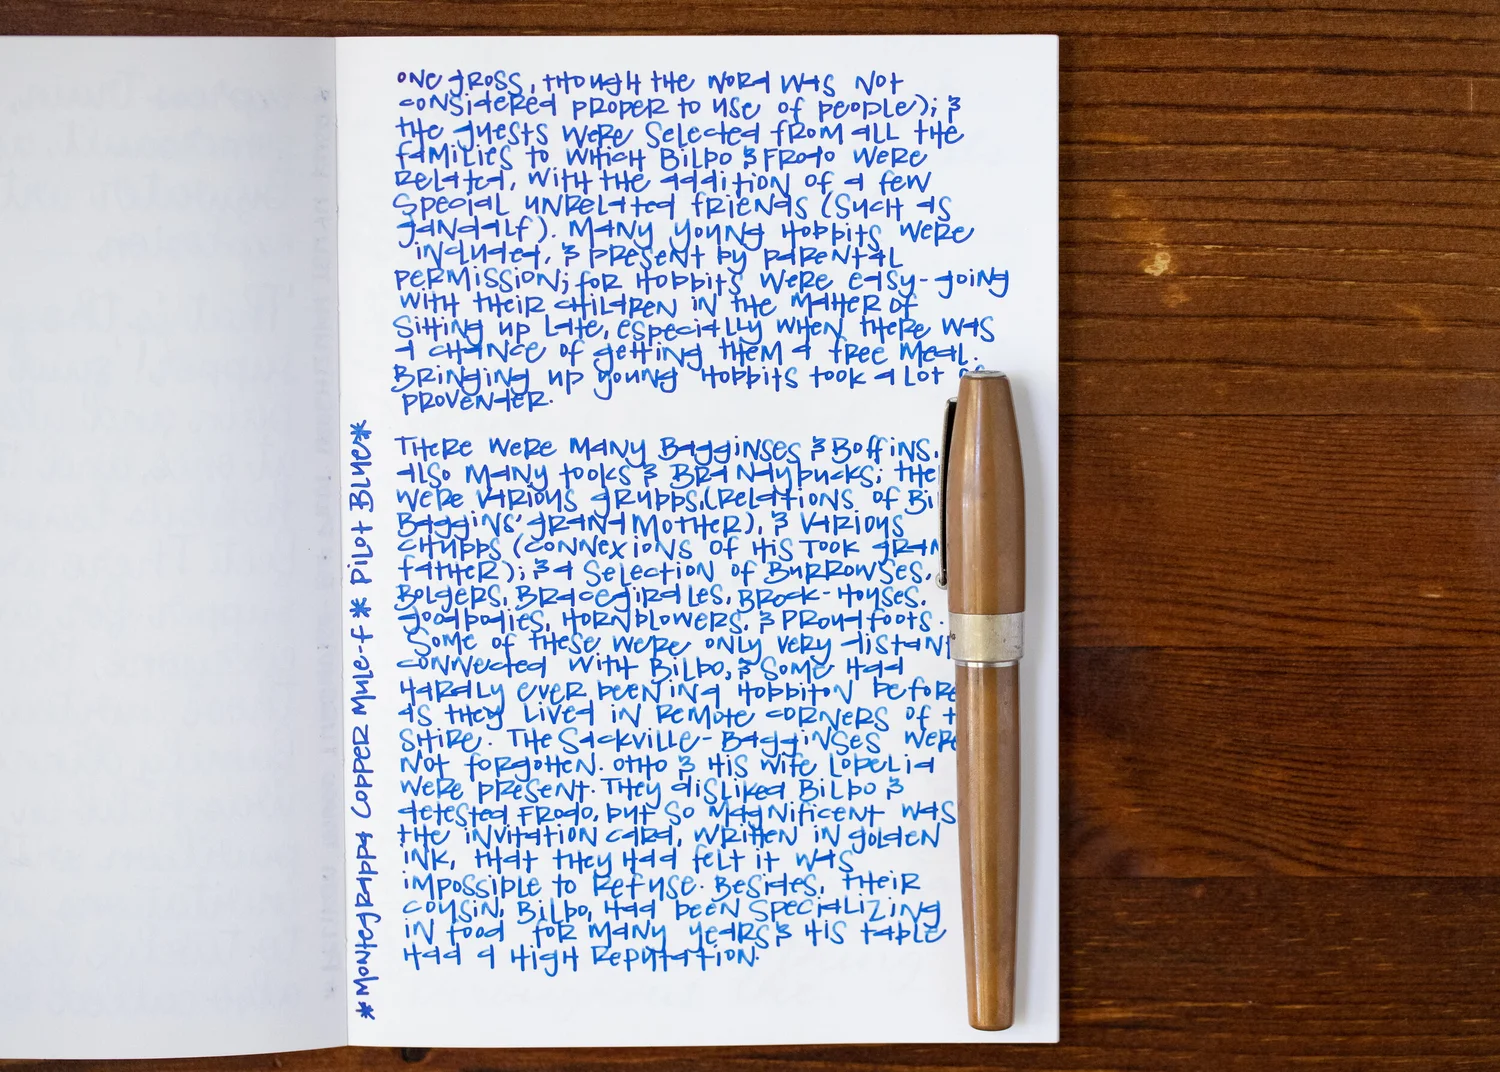 one gross, though the word was not
considered proper to use of people); &
the guests were selected from all the
families to which Bilbo & Frodo were
related, with the addition of a few
special unrelated friends (such as
Gandalf). Many young hobbits were
included, & present by parental
permission; for hobbits were easy-going
with their children in the matter of
sitting up late, especially when there was
a chance of getting them a free meal.
Bringing up young hobbits took a lot of
provender.
There were many Bagginses & Boffins,
also many Tooks & Brandybucks; the
were various Grubbs, (relations of Bi
Baggins' grandmother), & various
Chubbs (connexions of his Took gran
father); & a selection of Burrowses,
Bolgers, Bracegirdles, Brock-houses,
Goodbodies, Hornblowers, & Proudfoots.
Some of these were only very distant
connected with Bilbo, & some had
hardly ever been in a Hobbiton before
as they lived in remote corners of t
Shire. The Sackville-Bagginses were
not forgotten. Otho & his wife Lobelia
were present. They disliked Bilbo &
detested Frodo, but so magnificent was
the invitation card, written in golden
ink, that they had felt it was
impossible to refuse. Besides, their
cousin, Bilbo, had been specializing
in food for many years & his table
had a high reputation.
*Montegrappa Copper Mule-f * Pilot Blue*